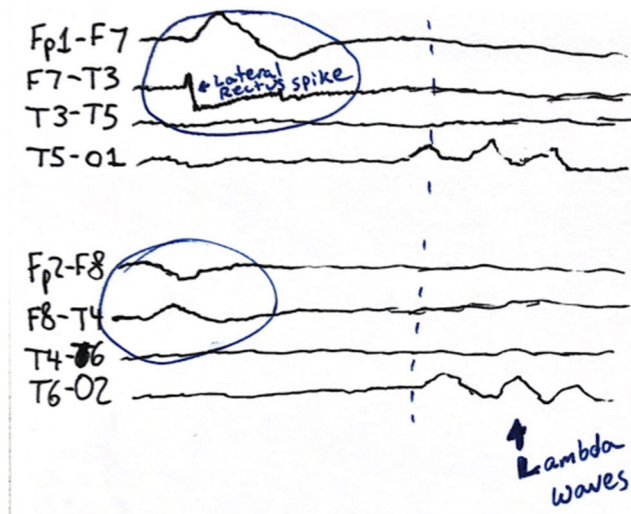 Fp1-F7
F7-T3
←Lateral
Rectus spike
T3-T5
T5-O1
Fp2-F8
F8-T4
T4-T6
T6-O2
Lambda
waves